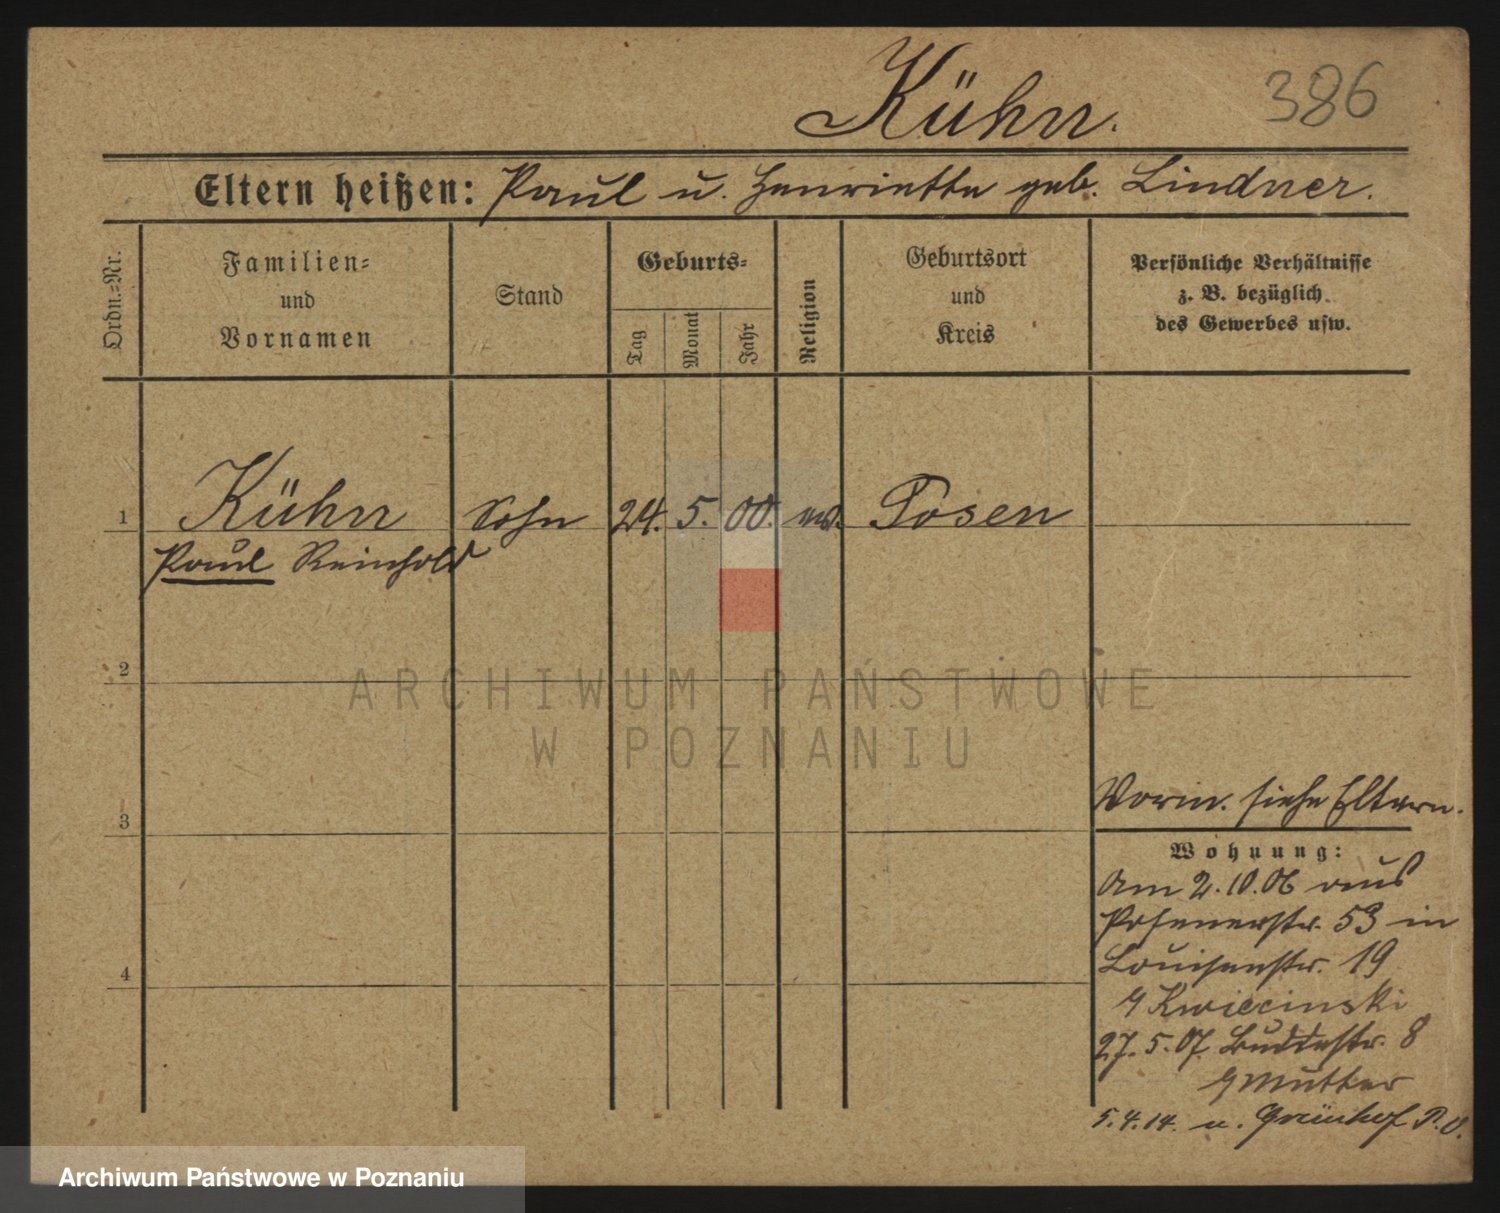 Kühn.
386
Eltern heißen: Paul u. Henriette geb. Lindner.
Ordn.=Nr.
Familien=
und
Vornamen
Stand
Geburts=
Tag
Monat
Jahr
Religion
Geburtsort
und
Kreis
Persönliche Verhältnisse
z. B. bezüglich
des Gewerbes usw.
1 Kühn Sohn 24. 5. 00. ev. Posen
Paul Reinhold
2
ARCHIWUM PAŃSTWOWE
W POZNANIU
3
Vorm. siehe Eltern.
Wohnung:
Am 2.10.06 aus
Posenerstr. 53 in
Louisenstr. 19
Kwiecinski
4
27.5.07. Buddestr. 8
Mutter
5.4.14. n. Grünhof P. O.
Archiwum Państwowe w Poznaniu